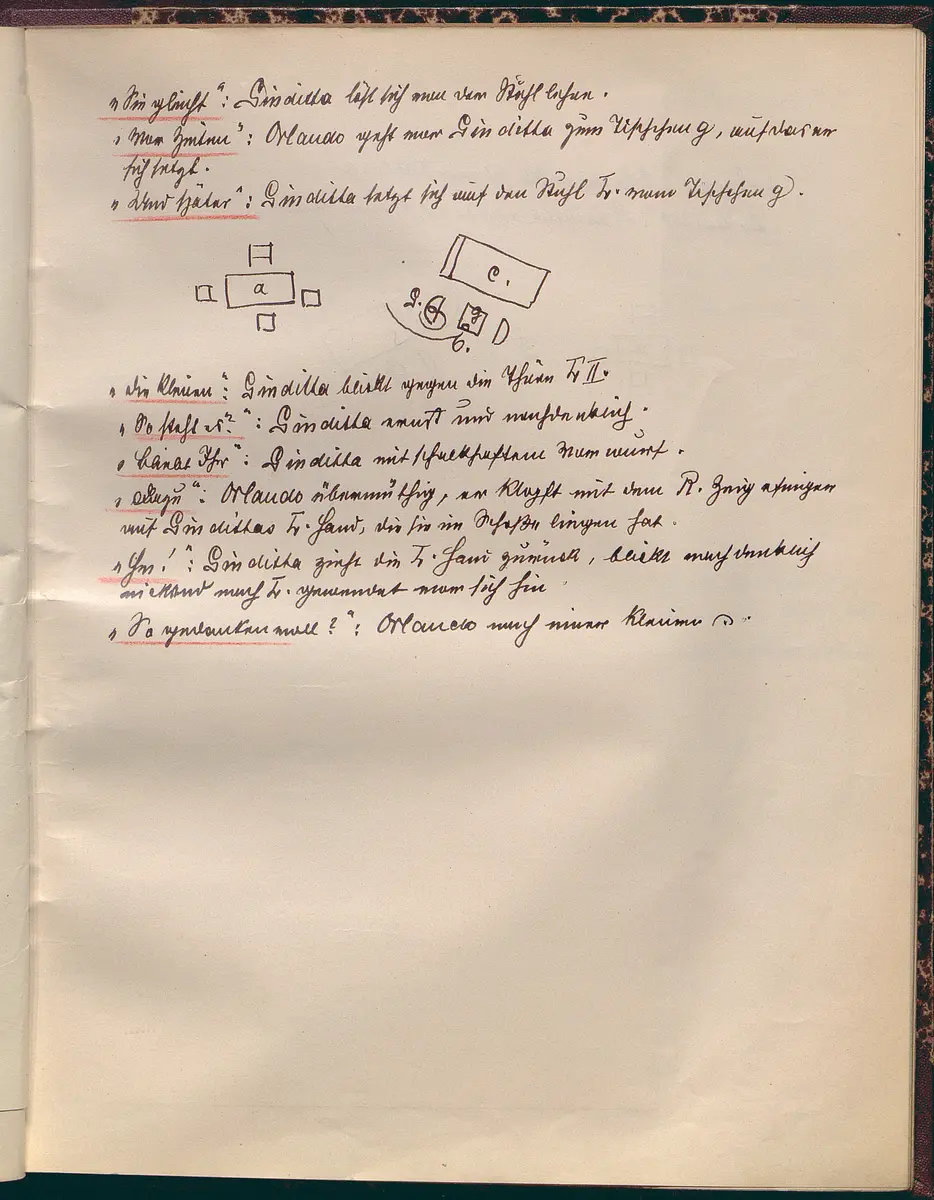 „Sie glüht“: Giuditta löst sich von der Stuhllehne.
„Vor Zeiten“: Orlando geht vor Giuditta zum Tischchen g, auf das er
sich setzt.
„Und später“: Giuditta setzt sich auf den Stuhl L. vom Tischchen g.
a
c.
G. g
O.
„die Kleinen“: Giuditta blickt gegen die Thüre L II.
„So steht es?“: Giuditta ernst und nachdenklich.
Ihr“: Giuditta mit schalkhaftem Vorwurf.
„dazu“: Orlando übermüthig, er klopft mit dem R. Zeigefinger
auf Giudittas L. Hand, die sie im Schoße liegen hat.
„Hm!“: Giuditta zieht die L. Hand zurück, blickt nachdenklich
nickend nach L. gewendet vor sich hin
„So gedankenvoll?“: Orlando nach einer kleinen